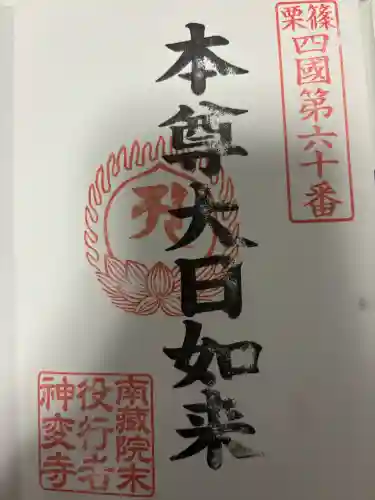 篠栗
四國第六十番
本尊大日如来
南藏院末
役行者
神変寺